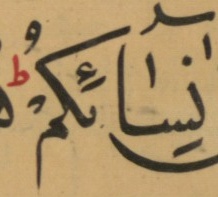 نِسَآئِكُمْ ط